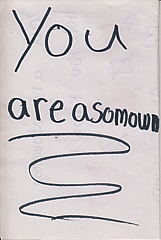 You
are asomown